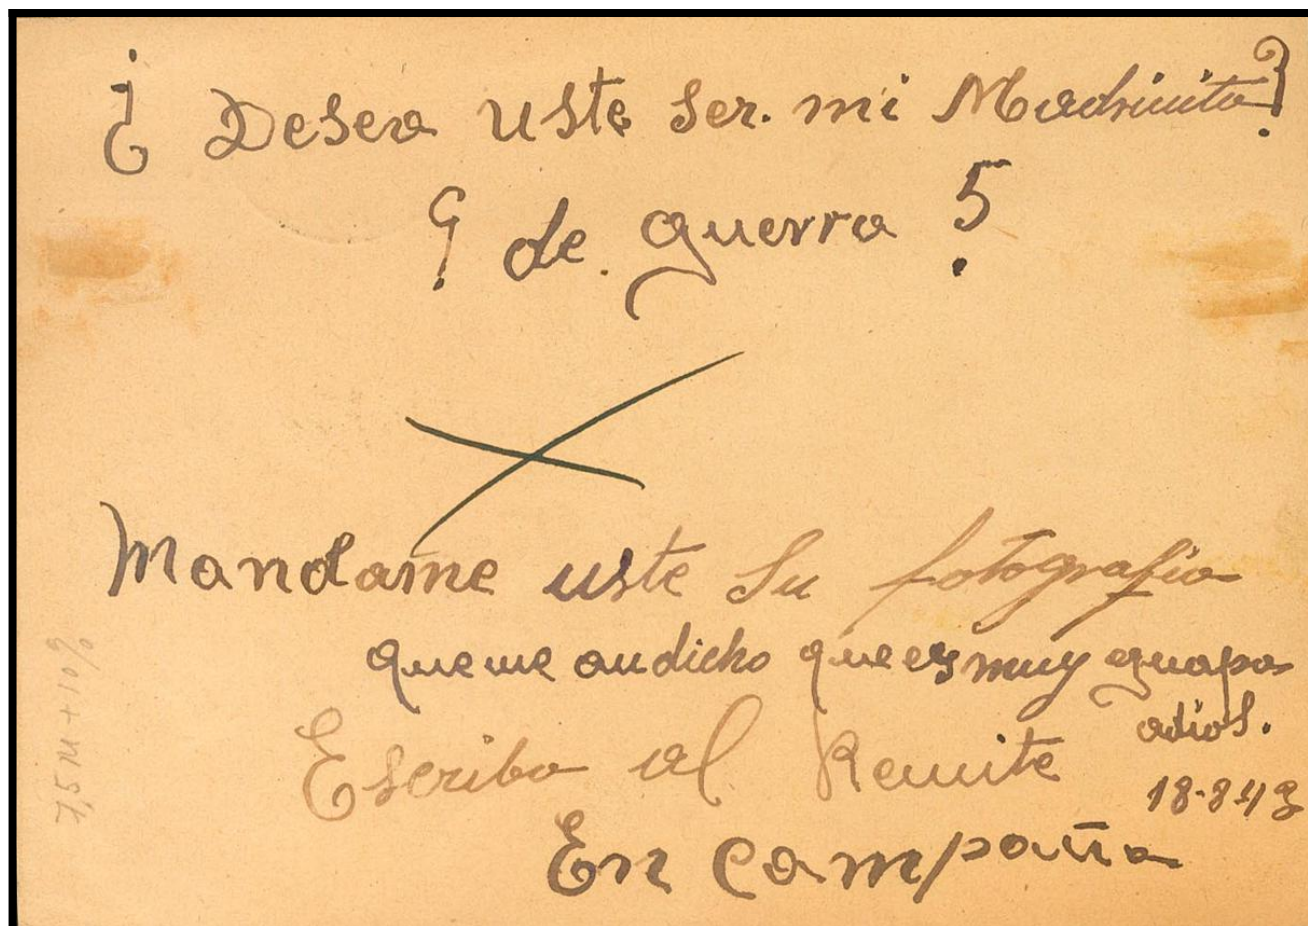 ¿Desea uste ser. mi Madrinita?
¿ de. guerra ?
Mandame uste su fotografia
queme andicho que es muy guapa
adios.
Escriba al Remite
18-8-43
En Campaña
7,5 M + 110%